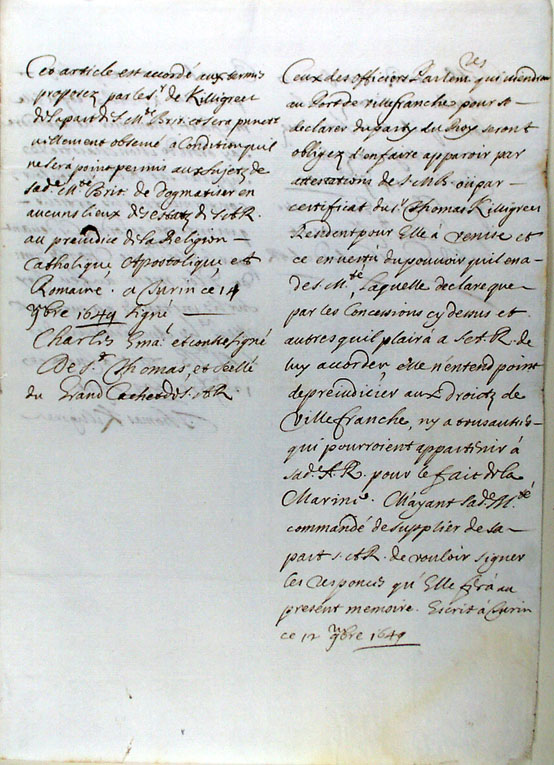 Cet article est accordé aux termes
proposez par le Sr. de Killigreu
de la part de S. Mte. Brit. et sera punctu
ellement observé a Condition qu'il
ne sera point permis aux Sujets de
sade. Mte. Brit. de Dogmatiser en
aucuns lieux des estatz de S.A.R.
au prejudice de la Religion
Catholique Apostolique et
Romaine. a Turin ce 14
9bre 1649 signé
Charles Ema. et contresigné
De St. Thomas, et scellé
du Grand Cachet de S.A.R
Ceux des officiers Parlemres qui viendront
au Port de villefranche pour se
declarer du party du Roy seront
obligez d'en faire apparoir par
attestations de S. MB. ou par
certificat du Sr. Thomas Killigreu
Resident pour Elle à Venise et
ce en vertu du pouvoir qu'il en a
de S. Mté, Laquelle declare que
par les Concessions cy dessus et
autres qu'il plaira a S.A.R. de
luy accorder elle n'entend point
de prejudicier aux Droictz de
Villefranche, ny a tous autres
qui pourroient appartenir à
sade. A.R. pour le fait de la
Marine. M'ayant sade. Mté.
commandé de supplier de sa
part S.A.R. de vouloir signer
les Responces qu'Elle fera au
present memoire. Escrit à Turin
ce 12 9bre 1649